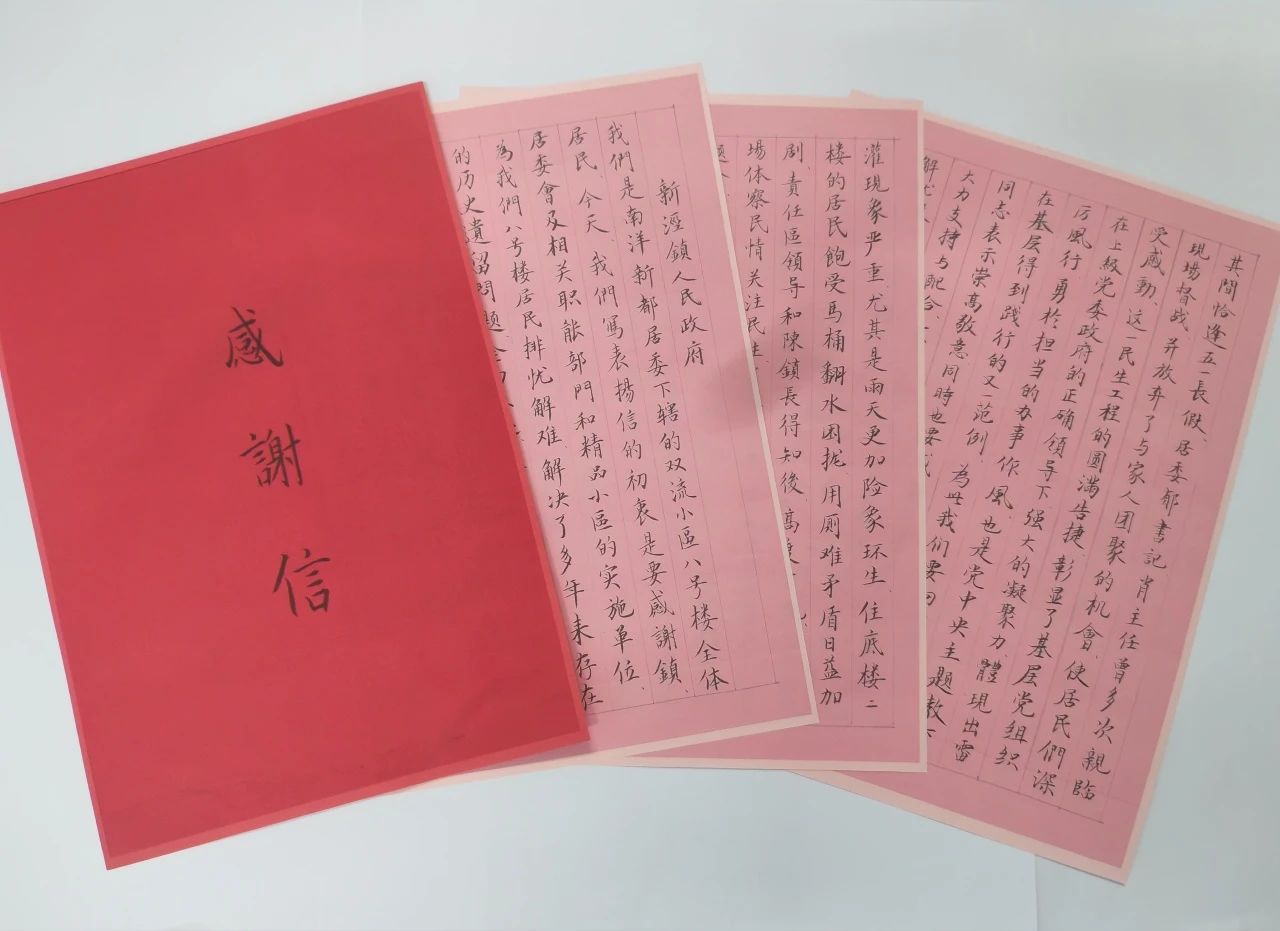 感謝信
新涇鎮人民政府
我們是南洋新都居委下轄的双流小區八号楼全体
居民今天、我們寫表揚信的初衷是要感謝鎮、
居委會及相关职能部門和精品小區的实施單位、
為我們八号楼居民排忧解难、解决了多年来存在
的历史遺留問題
灌現象严重尤其是雨天更加险象环生住底楼二
楼的居民飽受馬桶翻水困扰、用厕难矛盾日益加
剧、責任區领导和陳鎮長得知後、高度
場体察民情关注民生
其間恰逢五一長假、居委郁書記肖主任曾多次親臨
現場督战、并放弃了与家人团聚的机會、使居民們深
受感動、这一民生工程的圆满告捷、彰显了基层党组织
在上級党委政府的正确領导下强大的凝聚力、體現出雷
厉風行勇於担当的办事作風、也是党中央主题教
在基层得到践行的又一范例、為此我们要
同志表示崇高敬意同時也要
大力支持与配合、
解忧